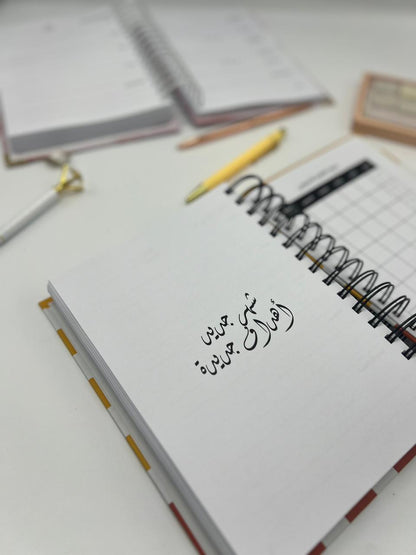 شهر جديد
أهداف جديدة